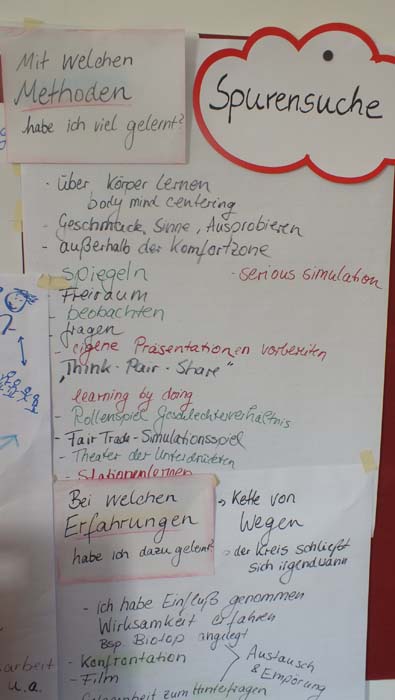 Mit welchen
Methoden
habe ich viel gelernt?
Spurensuche
· über Körper lernen
body mind centering
- Geschmack, Sinne, Ausprobieren
- außerhalb der Komfortzone
- spiegeln
- serious simulation
- Freiraum
- beobachten
- fragen
- eigene Präsentationen vorbereiten
"Think - Pair - Share"
learning by doing
- Rollenspiel Geschlechterverhältnis
- Fair Trade - Simulationsspiel
- Theater der Unterdrückten
- Stationenlernen
Bei welchen
Erfahrungen
habe ich dazu gelernt?
→ Kette von
Wegen
→ der Kreis schließt
sich irgendwann
- ich habe Einfluß genommen
Wirksamkeit erfahren
Bsp. Biotop angelegt
- Konfrontation
- Film
Austausch
& Empörung
zum Hinterfragen
arbeit
u.a.